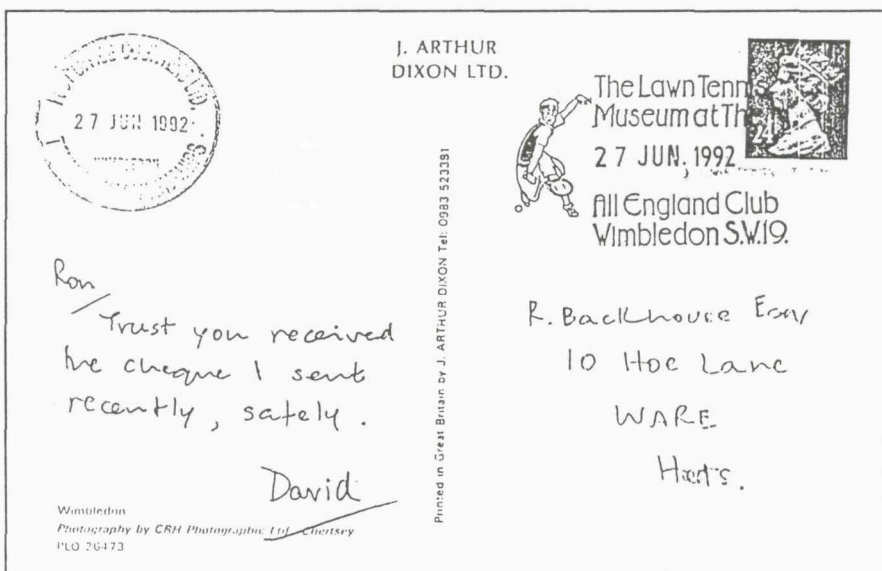 J. ARTHUR
DIXON LTD.
27 JUN 1992
WIMBLEDON
The Lawn Tennis
Museum at The
27 JUN. 1992
All England Club
Wimbledon S.W.19.
24
Ron
Trust you received
the cheque I sent
recently, safely.
David
Wimbledon
Photography by CRH Photographic Ltd Chertsey
PLO 26473
Printed in Great Britain by J. ARTHUR DIXON Tel: 0983 523381
R. Backhouse Esq
10 Hoe Lane
WARE
Herts.